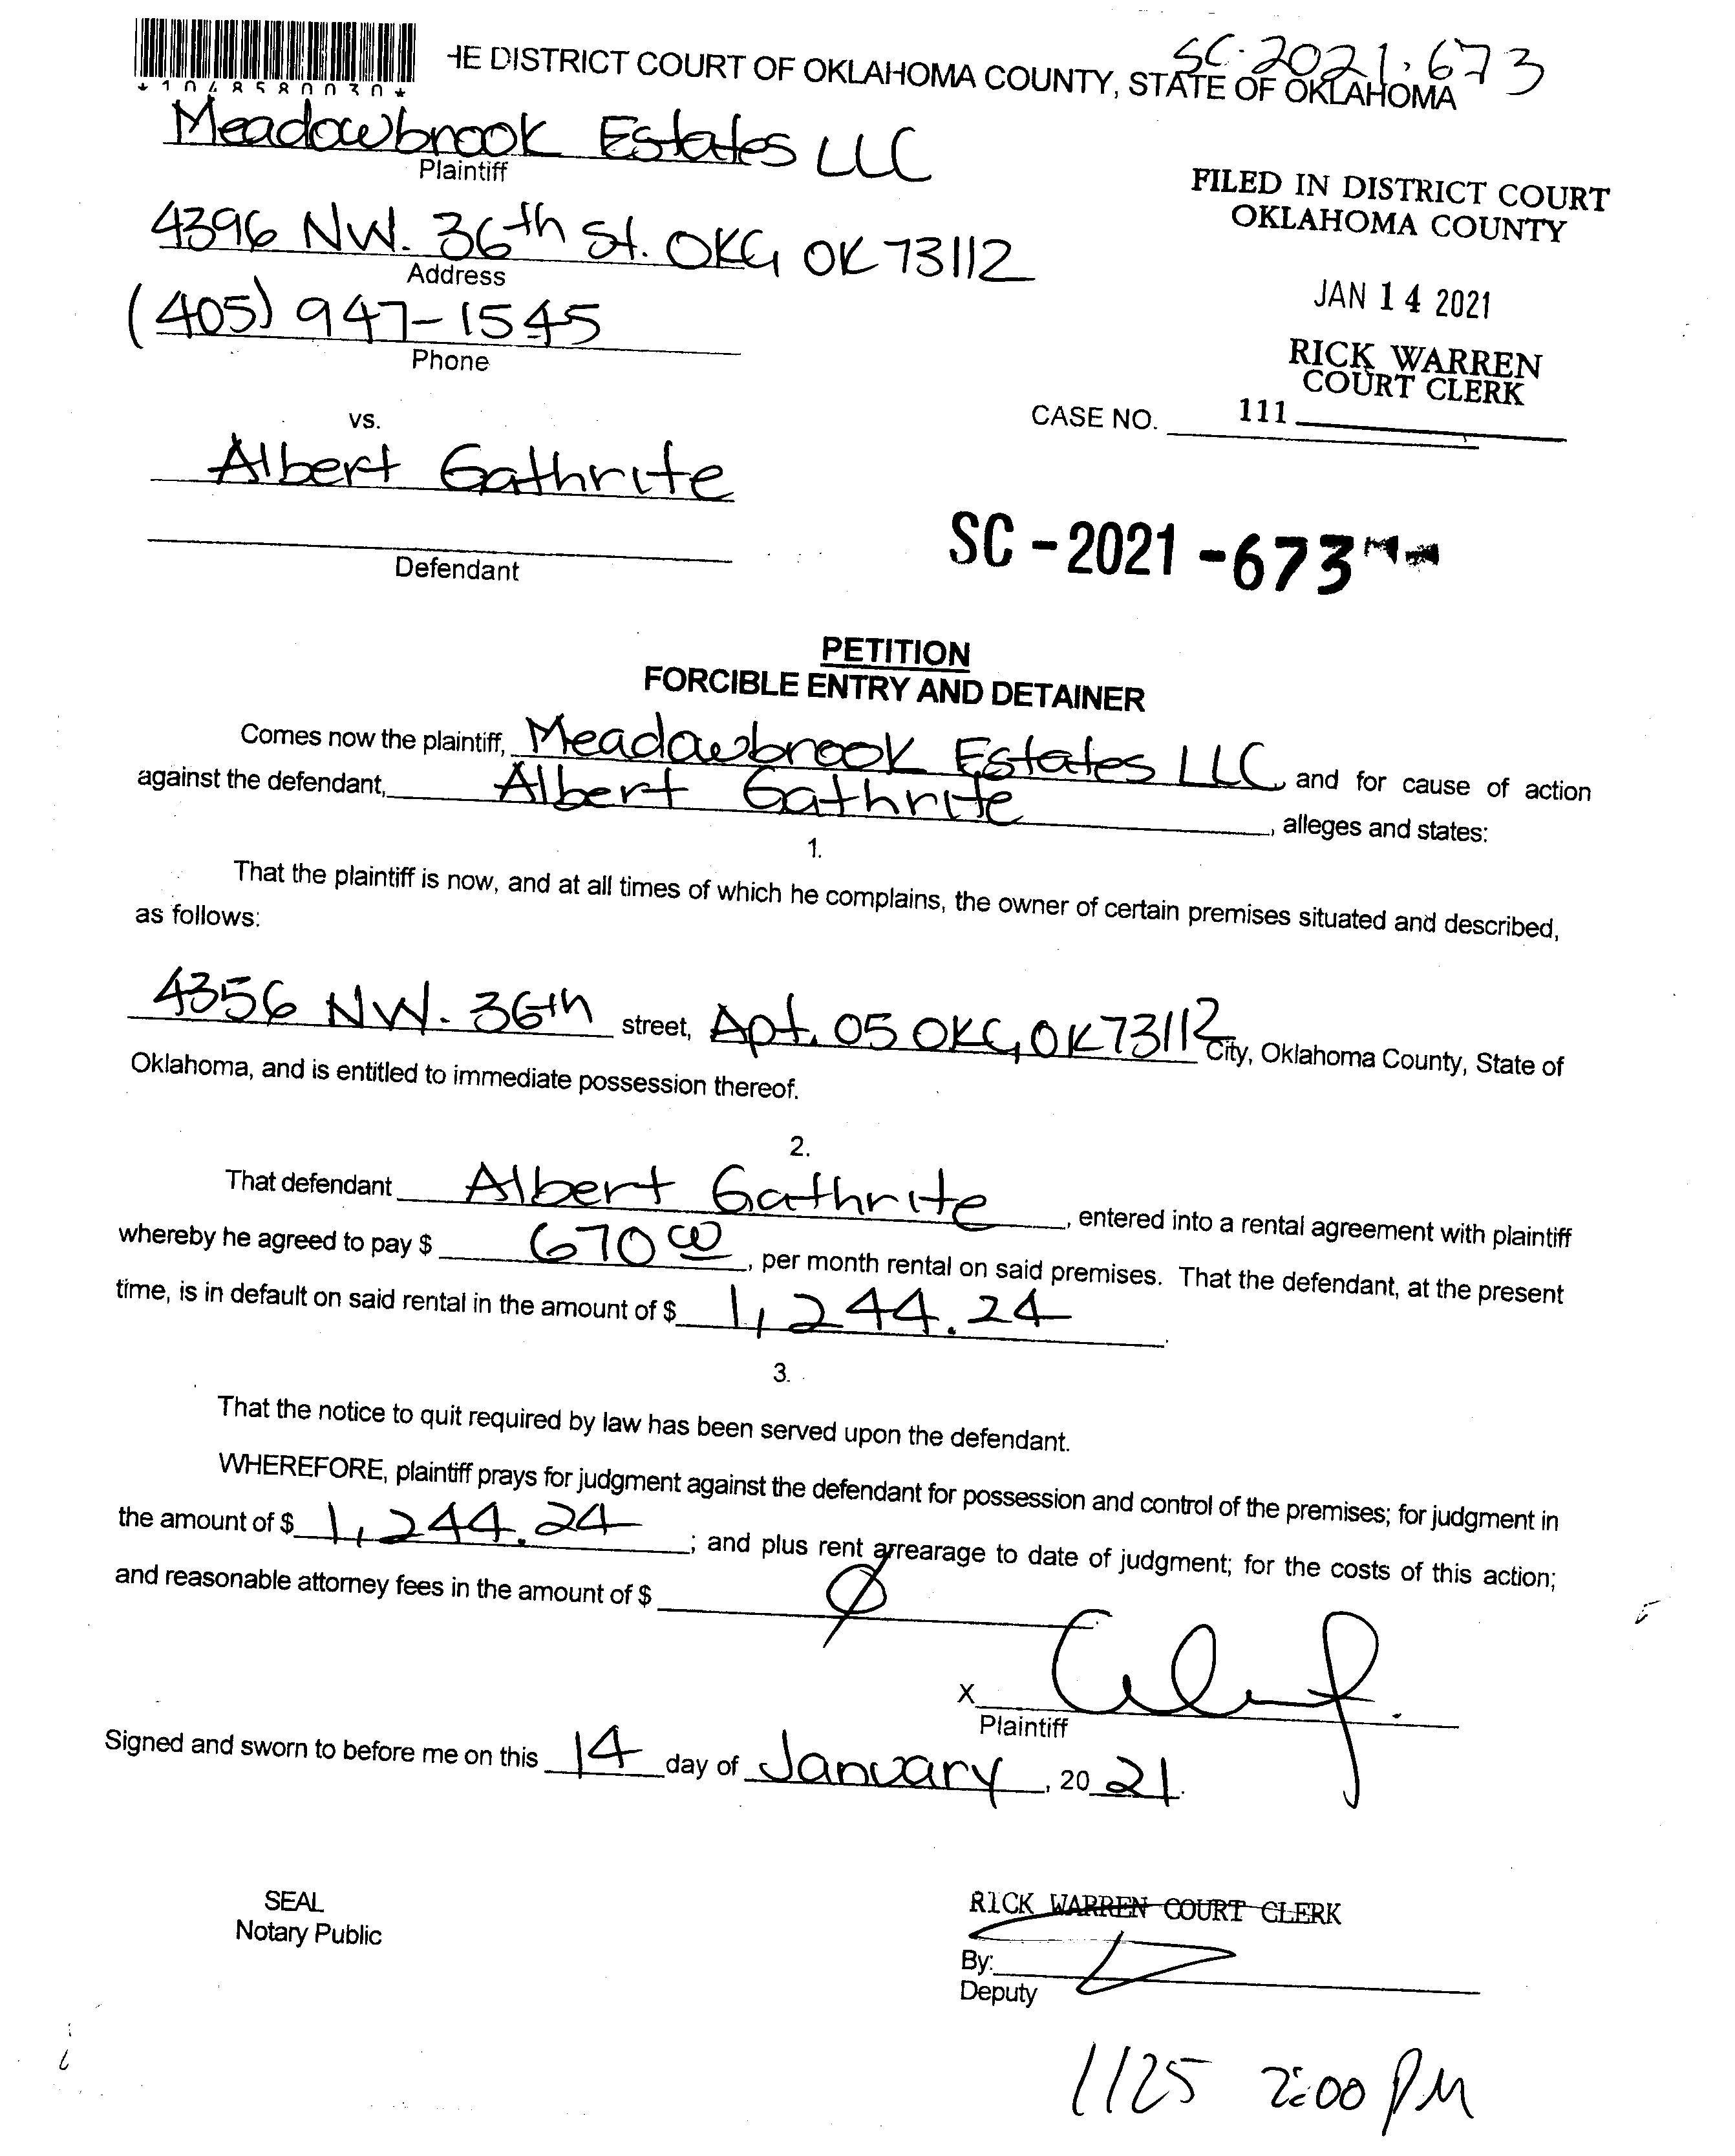 SC-2021-673
HE DISTRICT COURT OF OKLAHOMA COUNTY, STATE OF OKLAHOMA
*1048580030*
Meadowbrook Estates LLC
Plaintiff
4396 NW. 36th St. OKC, OK 73112
Address
(405) 947-1545
Phone
FILED IN DISTRICT COURT
OKLAHOMA COUNTY
JAN 14 2021
RICK WARREN
COURT CLERK
CASE NO. 111
vs.
Albert Gathrite
Defendant
SC-2021-673
PETITION
FORCIBLE ENTRY AND DETAINER
Comes now the plaintiff, Meadowbrook Estates LLC, and for cause of action
against the defendant, Albert Gathrite, alleges and states:
1.
That the plaintiff is now, and at all times of which he complains, the owner of certain premises situated and described,
as follows:
4356 NW. 36th street, Apt. 05 OKC, OK 73112 City, Oklahoma County, State of
Oklahoma, and is entitled to immediate possession thereof.
2.
That defendant Albert Gathrite, entered into a rental agreement with plaintiff
whereby he agreed to pay $ 670 00, per month rental on said premises. That the defendant, at the present
time, is in default on said rental in the amount of $ 1,244.24.
3.
That the notice to quit required by law has been served upon the defendant.
WHEREFORE, plaintiff prays for judgment against the defendant for possession and control of the premises; for judgment in
the amount of $ 1,244.24; and plus rent arrearage to date of judgment; for the costs of this action;
and reasonable attorney fees in the amount of $ Ø
X
Plaintiff
Signed and sworn to before me on this 14 day of January, 20 21.
SEAL
Notary Public
RICK WARREN COURT CLERK
By:
Deputy
1125 2:00 PM